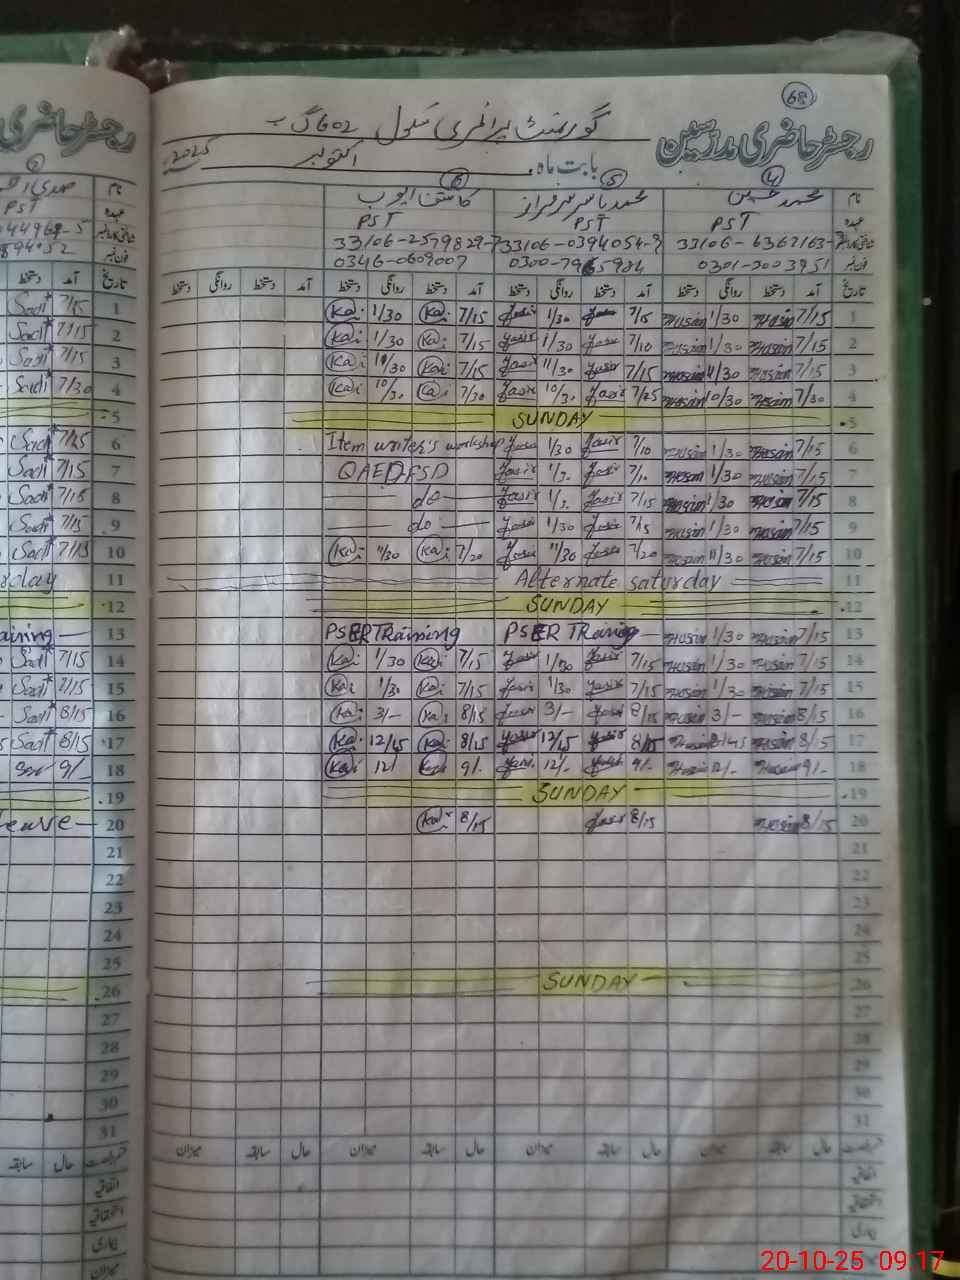 68
رجسٹر حاضری مدرسین گورنمنٹ پرائمری سکول 602 گ ب
بابت ماہ اکتوبر 2025
4 5 6
نام محمد حسین محمد یاسر سرفراز
عہدہ PST PST PST
33106-6367163- 33106-0394054-9 33106-2579829-7
فون نمبر 0301-2003951 0300-7965984 0346-0609007
تاریخ آمد دستخط روانگی دستخط آمد دستخط روانگی دستخط آمد دستخط روانگی دستخط آمد دستخط روانگی دستخط
1 7/15 Husain 1/30 Husain 7/15 Yasir 1/30 Yasir 7/15 Kai 1/30 Kai
2 7/15 Husain 1/30 Husain 7/10 Yasir 1/30 Yasir 7/15 Kai 1/30 Kai
3 7/15 Husain 11/30 Husain 7/15 Yasir 11/30 Yasir 7/15 Kai 10/30 Kai
4 7/30 Husain 10/30 Husain 7/25 Yasir 10/30 Yasir 7/30 Kai 10/30 Kai
5 SUNDAY
6 7/15 Husain 1/30 Husain 7/10 Yasir 1/30 Yasir Item writer's workshop
7 7/15 Husain 1/30 Husain 7/10 Yasir 1/3. Yasir QAED FSD
8 7/15 Husain 1/30 Husain 7/15 Yasir 1/3. Yasir do
9 7/15 Husain 1/30 Husain 7/15 Yasir 1/30 Yasir do
10 7/15 Husain 11/30 Husain 7/20 Yasir 11/30 Yasir 7/20 Kai 11/30 Kai
11 Alternate saturday
12 SUNDAY
13 7/15 Husain 1/30 Husain PSER TRaining PSER TRaining
14 7/15 Husain 1/30 Husain 7/15 Yasir 1/30 Yasir 7/15 Kai 1/30 Kai
15 7/15 Husain 1/30 Husain 7/15 Yasir 1/30 Yasir 7/15 Kai 1/30 Kai
16 8/15 Husain 3/- Husain 8/15 Yasir 3/- Yasir 8/15 Kai 3/- Kai
17 8/15 Husain 12/45 Husain 8/15 Yasir 12/45 Yasir 8/15 Kai 12/45 Kai
18 9/- Husain 12/- Husain 9/- Yasir 12/- Yasir 9/- Kai 12/ Kai
19 SUNDAY
20 8/15 Husain 8/15 Yasir 8/15 Kai
21
22
23
24
25
26 SUNDAY
27
28
29
30
31
حال سابقہ میزان حال سابقہ میزان حال سابقہ میزان
اتفاقیہ
استحقاقیہ
بیماری
میزان
رجسٹر حاضری
نام
عہدہ PST
44968-5
فون نمبر 894052
تاریخ آمد دستخط
1 7/15 Sadi
2 7/15 Sadi
3 7/15 Sadi
4 7/30 Sadi
5
6 7/25 Sadi
7 7/15 Sadi
8 7/15 Sadi
9 7/15 Sadi
10 7/15 Sadi
11 rday
12
13 aining
14 7/15 Sadi
15 7/15 Sadi
16 8/15 Sadi
17 8/15 Sadi
18 9/-
19
20 Leave
21
22
23
24
25
26
27
28
29
30
31
حال سابقہ
اتفاقیہ
استحقاقیہ
بیماری
میزان
20-10-25 09.17